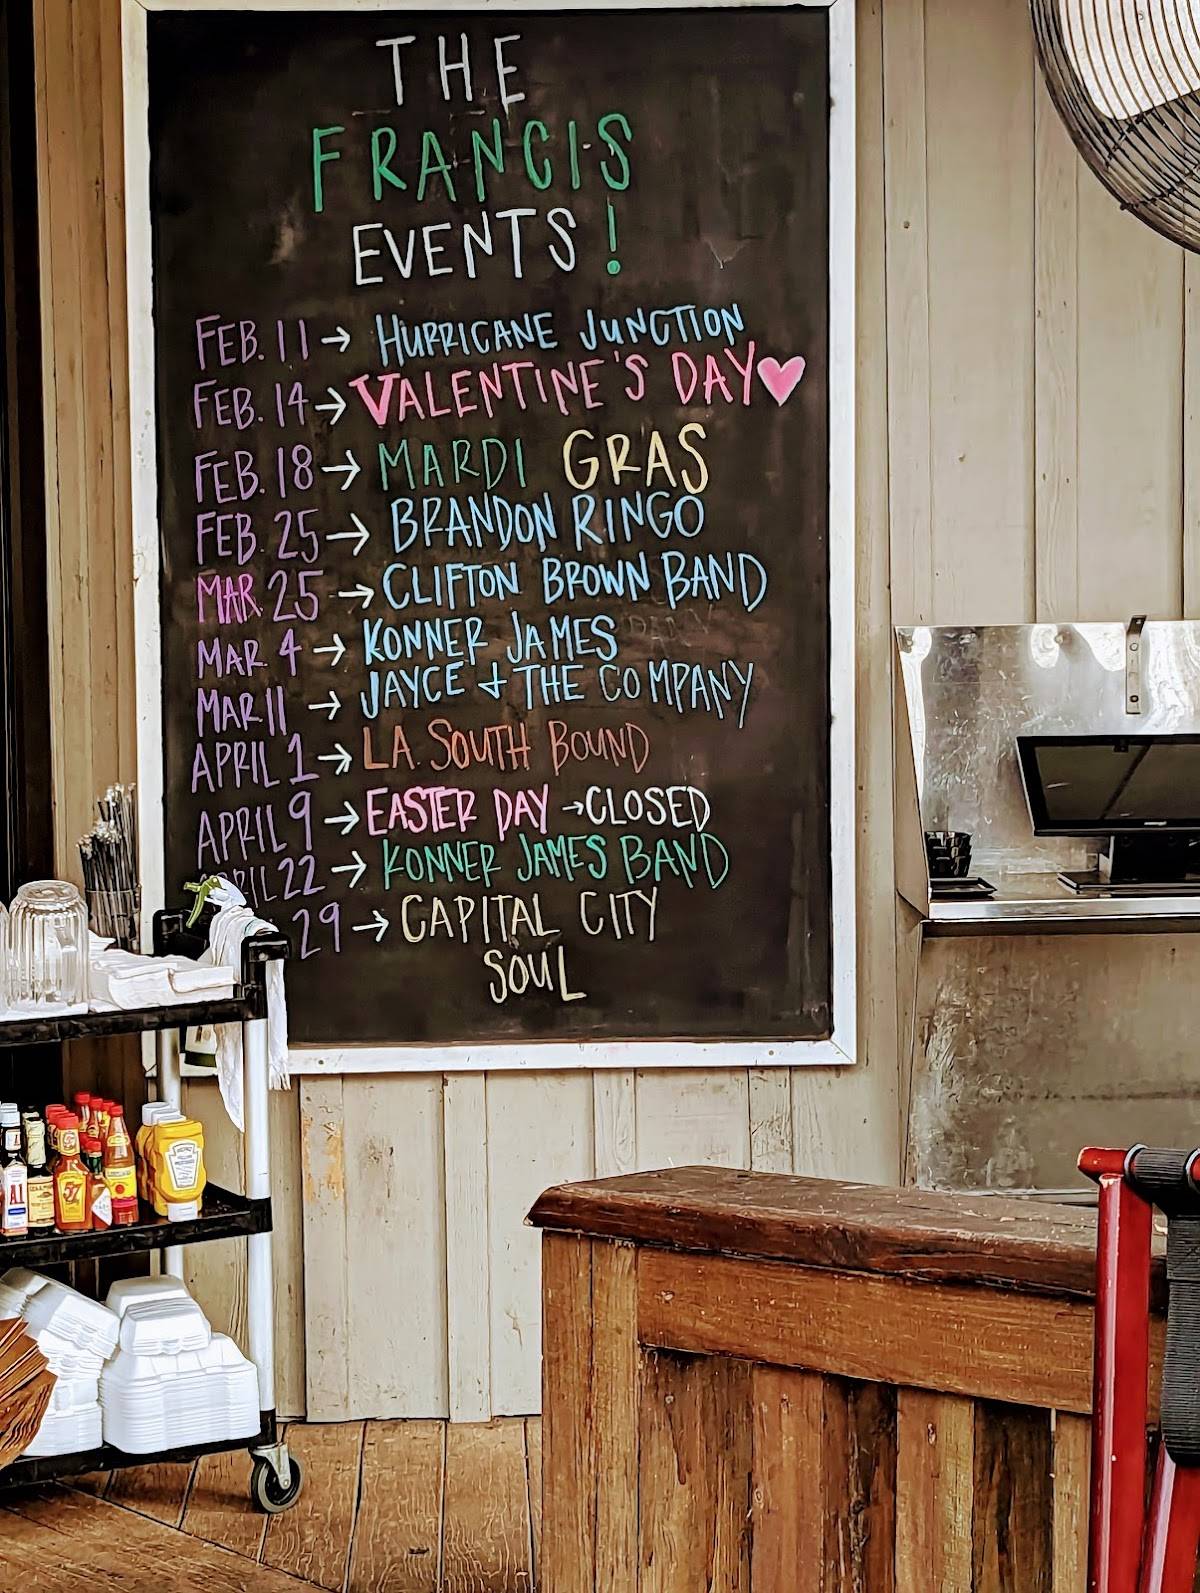 THE
FRANCIS
EVENTS!
FEB. 11 → HURRICANE JUNCTION
FEB. 14 → VALENTINE'S DAY ♥
FEB. 18 → MARDI GRAS
FEB. 25 → BRANDON RINGO
MAR. 25 → CLIFTON BROWN BAND
MAR. 4 → KONNER JAMES
MAR 11 → JAYCE + THE COMPANY
APRIL 1 → LA. SOUTH BOUND
APRIL 9 → EASTER DAY → CLOSED
APRIL 22 → KONNER JAMES BAND
29 → CAPITAL CITY
SOUL
A.1
57